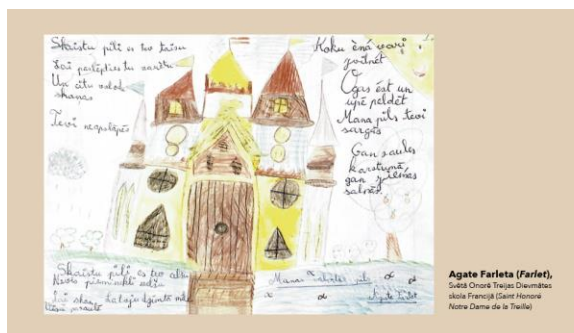 Skaistu pili es tev taisu
Lai paslēpties tu varētu
Un citu valodu
skaņas
Tevi neapēnās
Koku ēnā vari
zvilnēt
Ogas ēst un
upē peldēt
Mana pils tevi
sargās
Gan saules
karstumā,
gan ziemas
salnās.
Skaistu pili es tev
Lai skan latviešu dzimtā
Manas valodas pils
Agate Farlet
Agate Farleta (Farlet),
Svētā Onorē Treijas Dievmātes
skola Francijā (Saint Honoré
Notre Dame de la Treille)